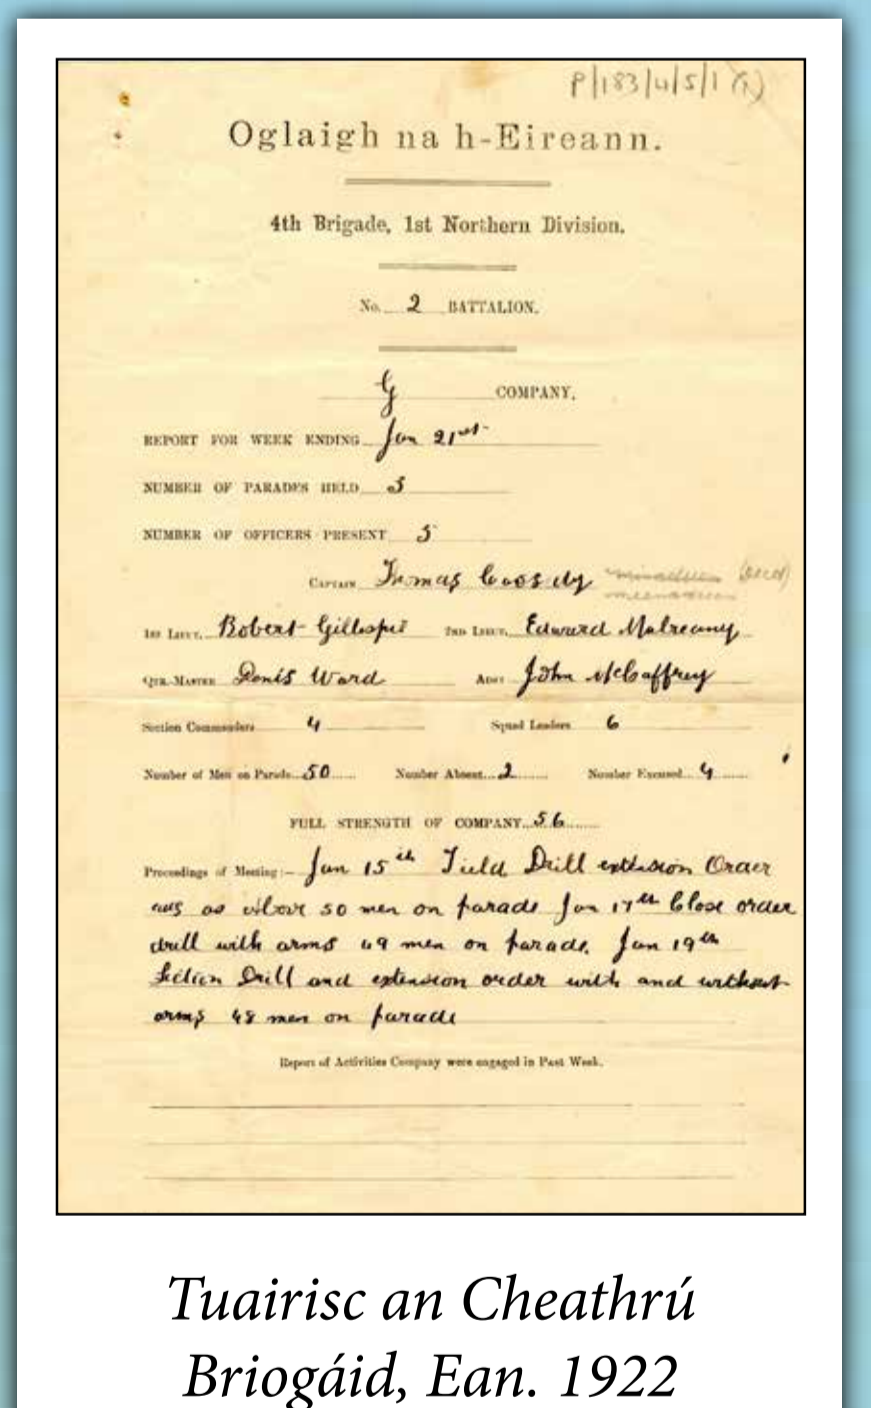 P/183/4/5/1
Oglaigh na h-Eireann.
4th Brigade, 1st Northern Division.
No. 2 BATTALION.
G COMPANY.
REPORT FOR WEEK ENDING Jan 21st
NUMBER OF PARADES HELD 3
NUMBER OF OFFICERS PRESENT 5
CAPTAIN Thomas Cassidy
1ST LIEUT. Robert Gillespie 2ND LIEUT. Edward Mulreany
QTR.-MASTER Denis Ward ADJT John McCaffrey
Section Commanders 4 Squad Leaders 6
Number of Men on Parade 50 Number Absent 2 Number Excused 4
FULL STRENGTH OF COMPANY 56
Proceedings of Meeting:- Jan 15th Field Drill extension Order
as above 50 men on parade Jan 17th Close order
drill with arms 49 men on parade. Jan 19th
Section Drill and extension order with and without
arms 48 men on parade
Report of Activities Company were engaged in Past Week.
Tuairisc an Cheathrú
Briogáid, Ean. 1922